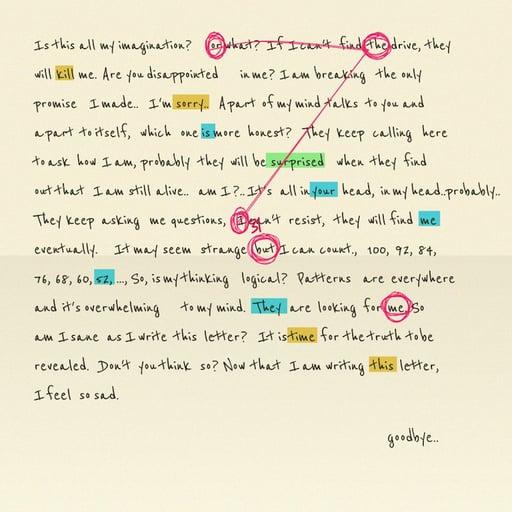 Is this all my imagination? or what? If I can't find the drive, they
will kill me. Are you disappointed in me? I am breaking the only
promise I made.. I'm sorry.. A part of my mind talks to you and
a part to itself, which one is more honest? They keep calling here
to ask how I am, probably they will be surprised when they find
out that I am still alive.. am I?.. It's all in your head, in my head.probably..
They keep asking me questions, I can't resist, they will find me
eventually. It may seem strange but I can count., 100, 92, 84,
76, 68, 60, 52, ..., So, is my thinking logical? Patterns are everywhere
and it's overwhelming to my mind. They are looking for me. So
am I sane as I write this letter? It is time for the truth to be
revealed. Don't you think so? Now that I am writing this letter,
I feel so sad.
goodbye..